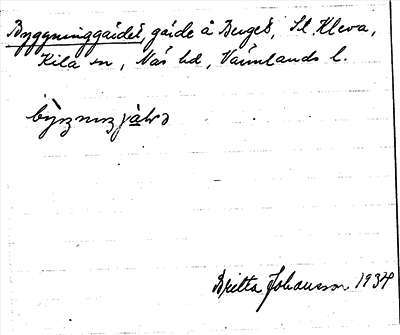 Byggninggärdet, gärde å Berget, St Kleva,
Kila sn, Näs hd, Värmlands l.
Britta Johansson 1934